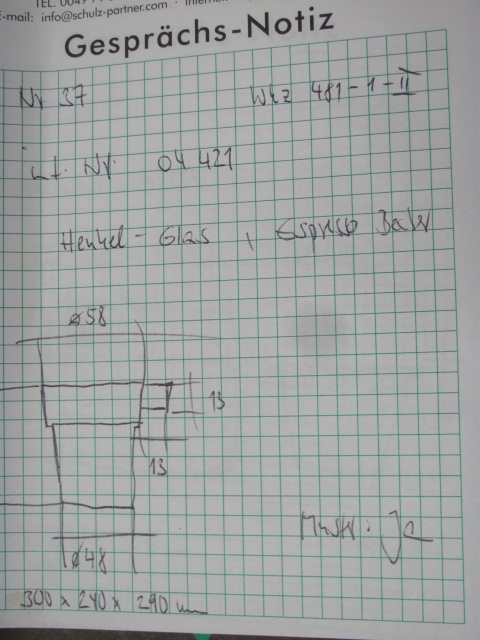 TEL. 0049
E-mail: info@schulz-partner.com · Intern
Gesprächs-Notiz
Nr 37
Wkz 481-1-II
int. Nr. 04 421
Henkel-Glas, Espresso Becher
ø58
13
13
Muster: Ja
ø48
300 x 240 x 290 mm